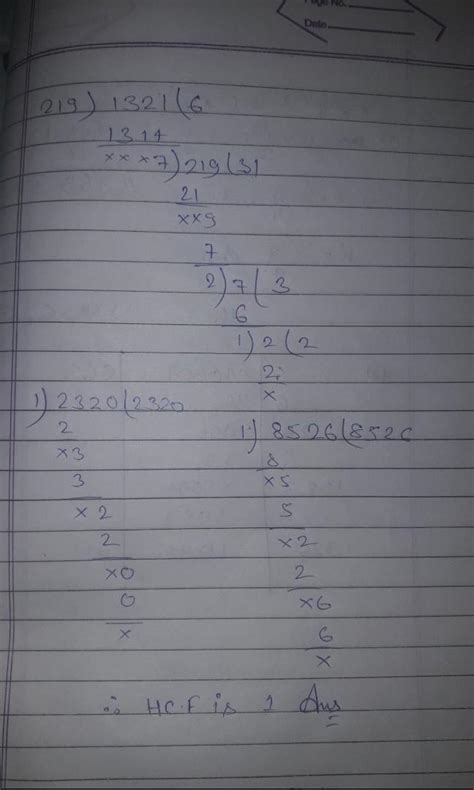 Page No.
Date
219) 1321 (6
1314
xxx7) 219 (31
21
xx9
7
2) 7 ( 3
6
1) 2 ( 2
2
x
1) 2320 (2320
2
x3
3
x2
2
x0
0
x
1) 8526 (8526
8
x5
5
x2
2
x6
6
x
∴ H.C.F is 1 Ans